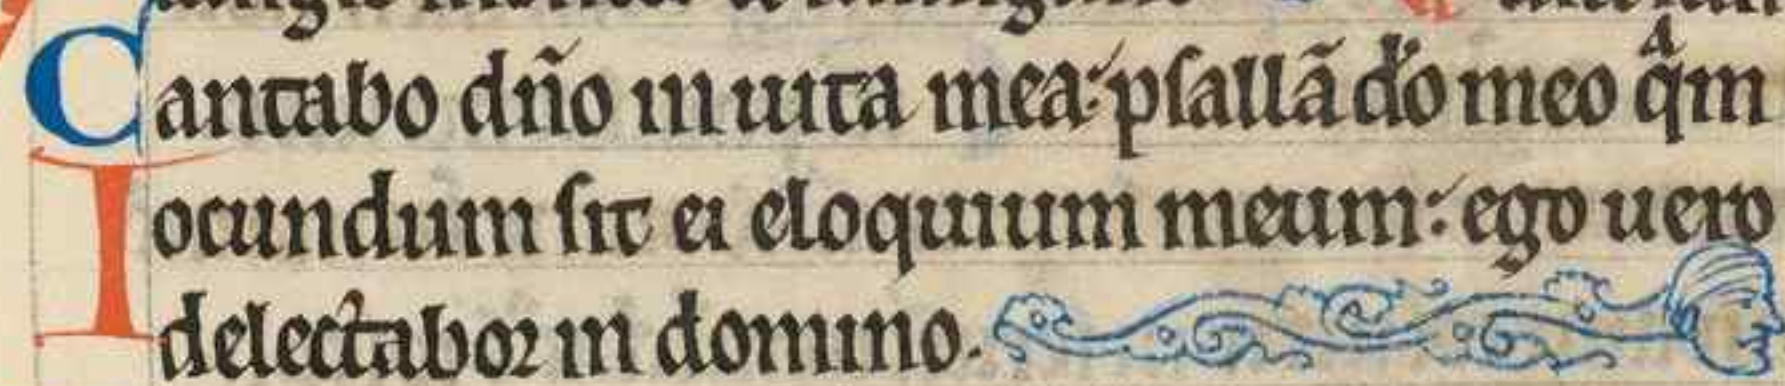 Cantabo dño in uita mea: psallã do meo qͣm
Iocundum sit ei eloquium meum: ego uero
delectabor in domino.